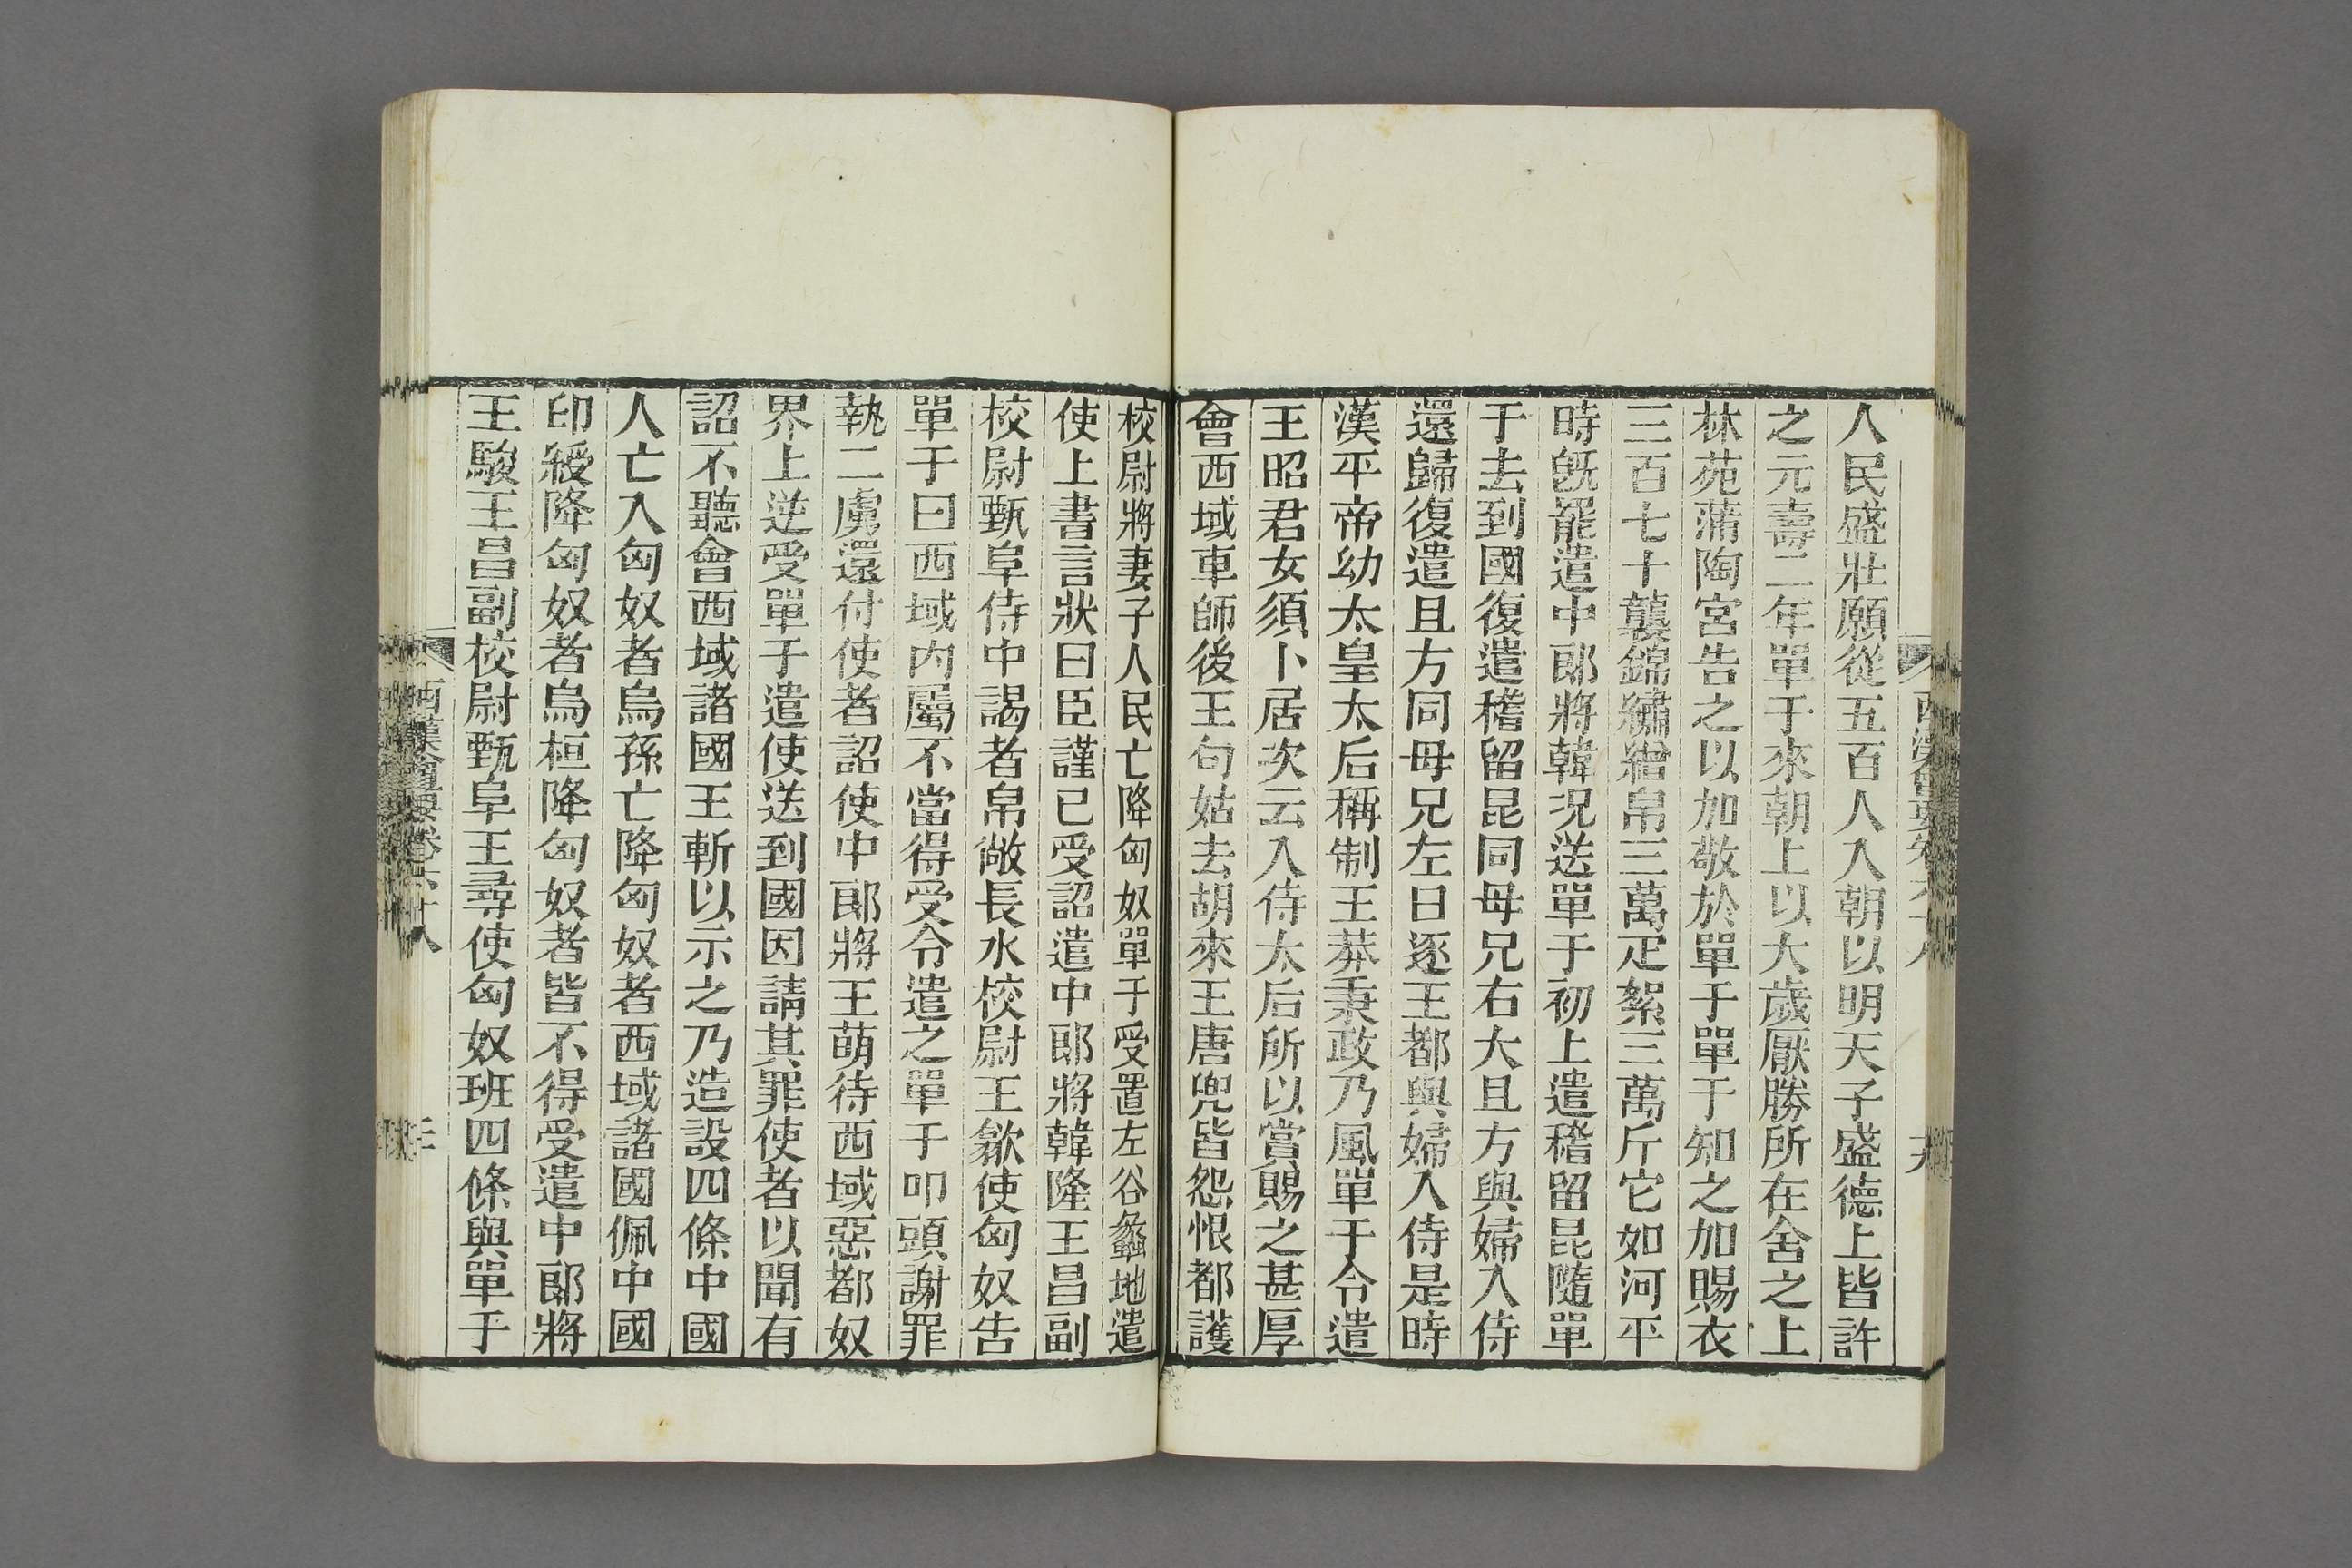 人民盛壯願從五百人入朝以明天子盛德上皆許
之元壽二年單于來朝上以大歲厭勝所在舍之上
林苑蒲陶宮告之以加敬於單于單于知之加賜衣
三百七十襲錦繡繒帛三萬疋絮三萬斤它如河平
時旣罷遣中郎將韓况送單于初上遣稽留昆隨單
于去到國復遣稽留昆同母兄右大且方與婦入侍
還歸復遣且方同母兄左日逐王都與婦入侍是時
漢平帝幼太皇太后稱制王莽秉政乃風單于令遣
王昭君女須卜居次云入侍太后所以賞賜之甚厚
會西域車師後王句姑去胡來王唐兜皆怨恨都護
校尉將妻子人民亡降匈奴單于受置左谷蠡地遣
使上書言狀曰臣謹已受詔遣中郎將韓隆王昌副
校尉甄阜侍中謁者帛敞長水校尉王歙使匈奴告
單于曰西域內屬不當得受令遣之單于叩頭謝罪
執二虜還付使者詔使中郎將王萌待西域惡都奴
界上逆受單于遣使送到國因請其罪使者以聞有
詔不聽會西域諸國王斬以示之乃造設四條中國
人亡入匈奴者烏孫亡降匈奴者西域諸國佩中國
印綬降匈奴者烏桓降匈奴者皆不得受遣中郎將
王駿王昌副校尉甄阜王尋使匈奴班四條與單于
西漢會要卷六十八